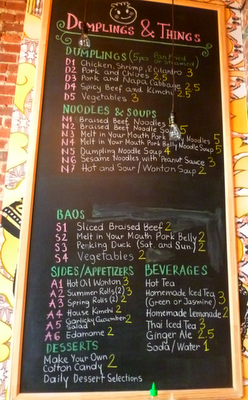 DUMPLINGS & THINGS
DUMPLINGS (5pcs Pan Fried
or Steamed)
D1 Chicken, Shrimp, & Cilantro 3
D2 Pork and Chives 2.5
D3 Pork and Napa Cabbage 2.5
D4 Spicy Beef and Kimchi 2.5
D5 Vegetables 3
NOODLES & SOUPS
N1 Braised Beef Noodles 5
N2 Braised Beef Noodle Soup 5
N3 Melt in Your Mouth Pork Belly Noodles 5
N4 Melt in Your Mouth Pork Belly Noodle Soup 5
N5 Dumpling Noodle Soup 4
N6 Sesame Noodles with Peanut Sauce 3
N7 Hot and Sour/Wonton Soup 2
BAOS
S1 Sliced Braised Beef 2
S2 Melt in Your Mouth Pork Belly 2
S3 Penking Duck (Sat. and Sun) 2
S4 Vegetables 2
SIDES/APPETIZERS
A1 Hot Oil Wonton 3
A2 Summer Rolls (2) 3
A3 Spring Rolls (2) 2
A4 House Kimchi 2
A5 Garlicky Cucumber
Salad 2
A6 Edamame 2
DESSERTS
Make Your Own
Cotton Candy 2
Daily Dessert Selections
BEVERAGES
Hot Tea
Homemade Iced Tea 3
(Green or Jasmine)
Homemade Lemonade 2
Thai Iced Tea 3
Ginger Ale 2.5
Soda/Water 1